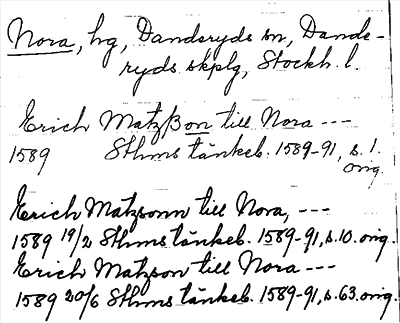 Nora, hg, Danderyds sn, Dande-
ryds skplg, Stockh. l.
Erich Matzßon till Nora ---
1589 Sthms tänkeb. 1589-91, s. 1.
orig.
Erich Matzsonn till Nora, ---
1589 19/2 Sthms tänkeb. 1589-91, s. 10. orig.
Erich Matzson till Nora ---
1589 20/6 Sthms tänkeb. 1589-91, s. 63. orig.